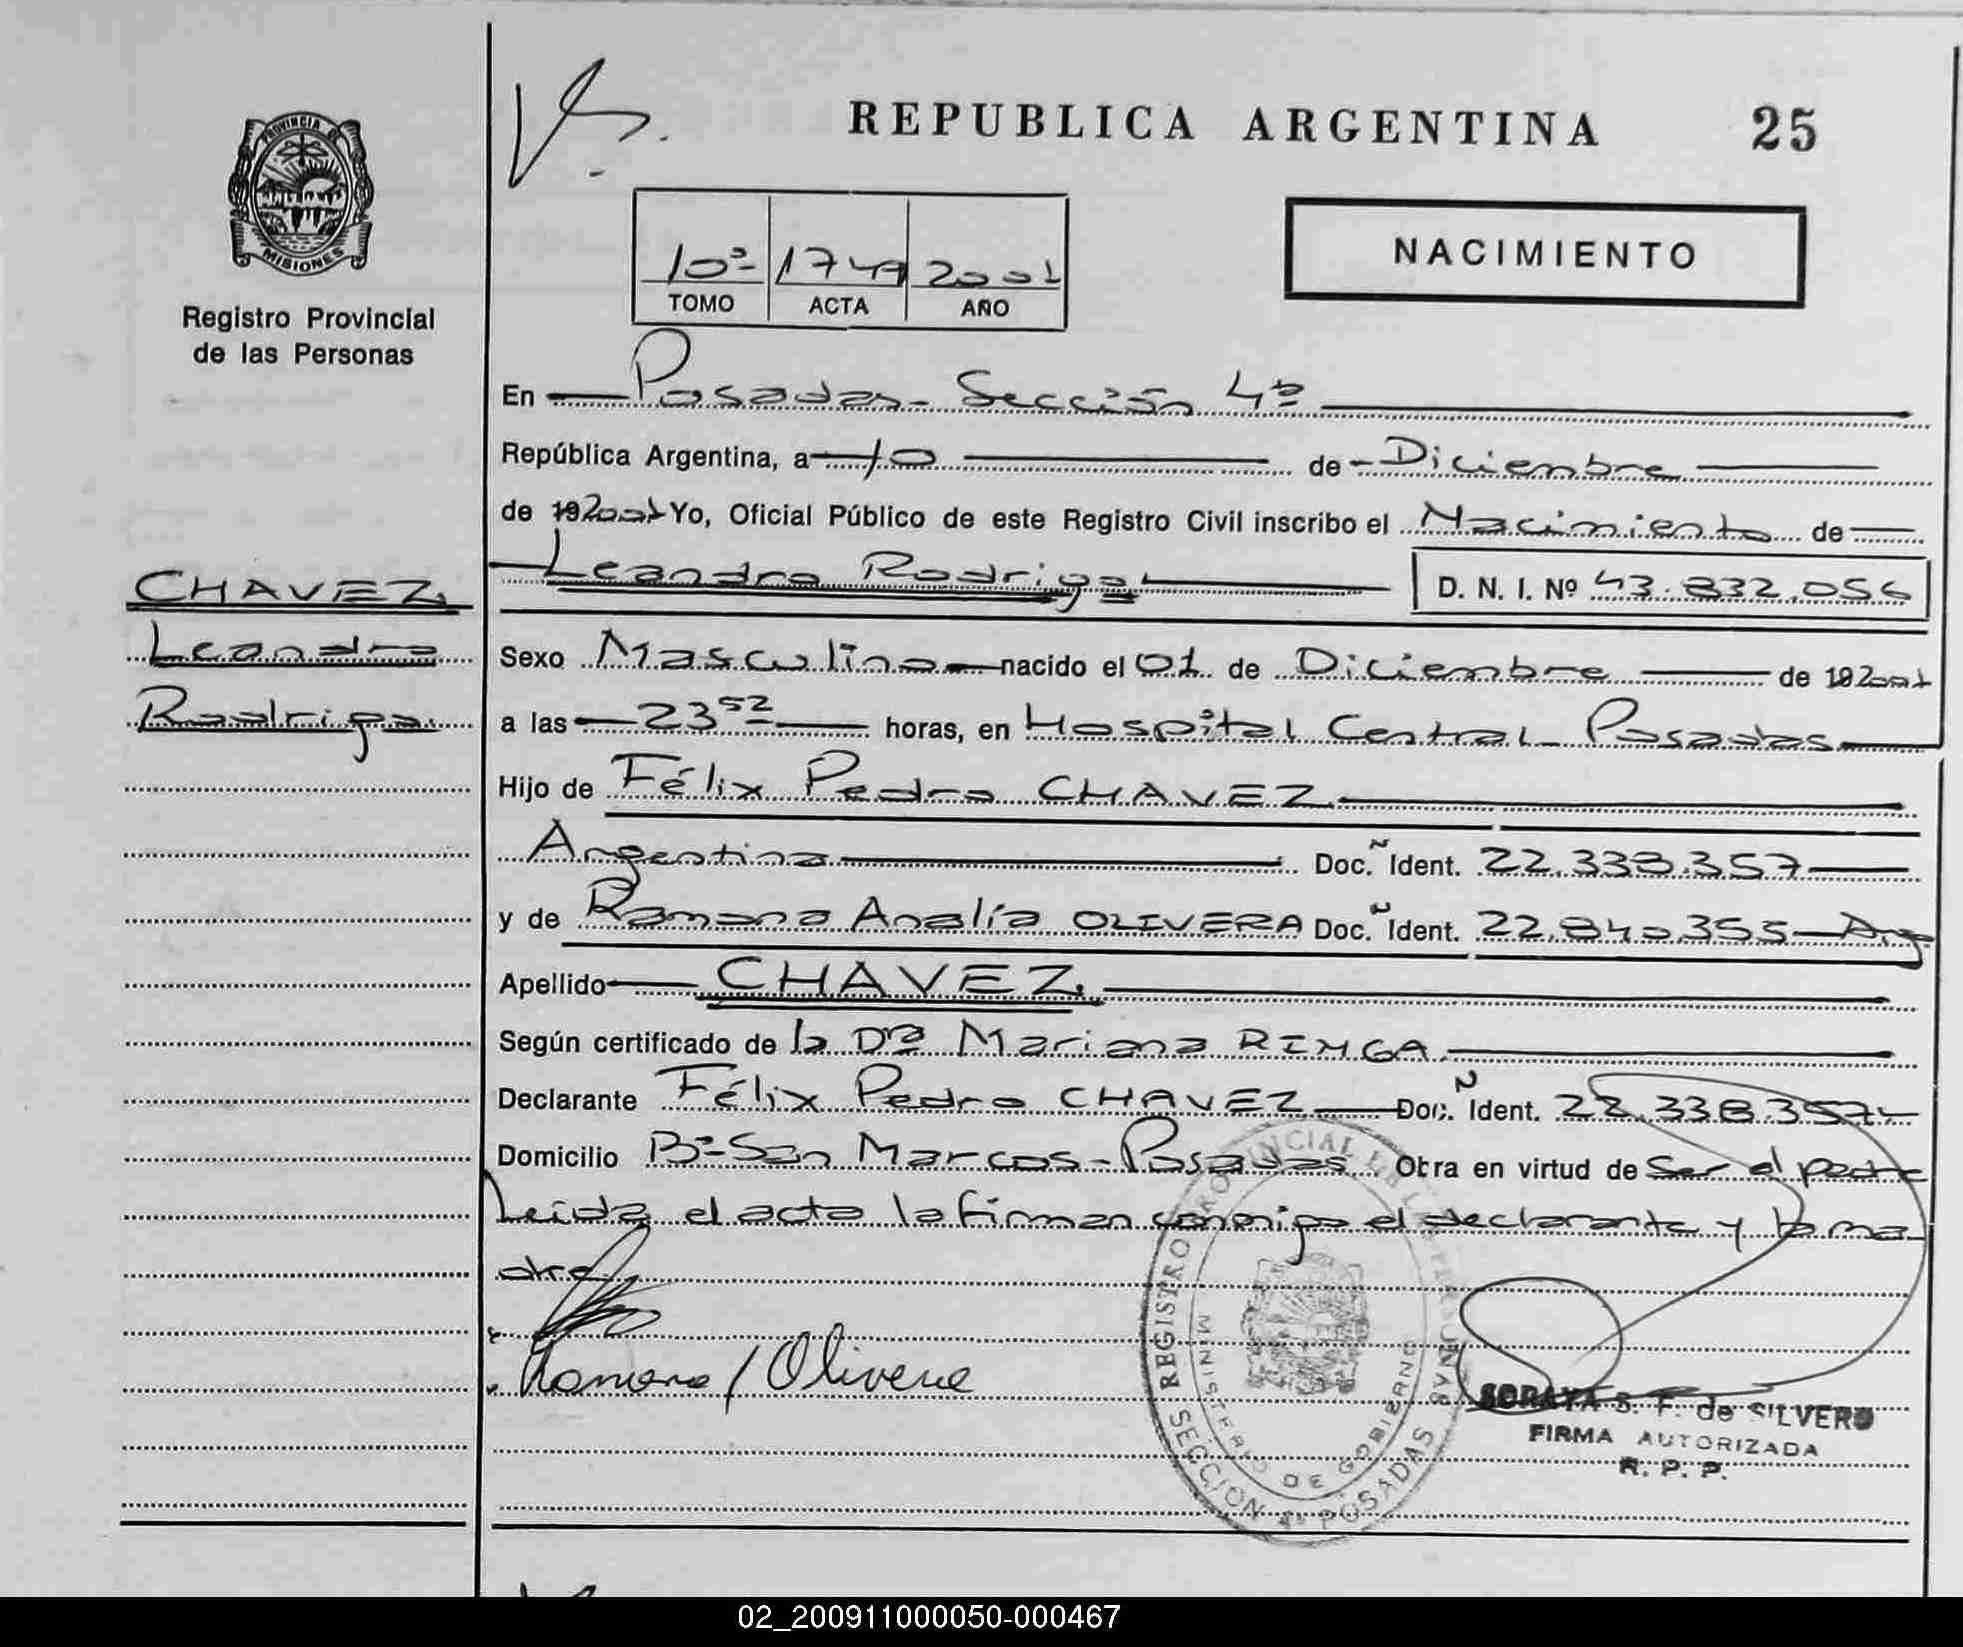 REPUBLICA ARGENTINA 25
PROVINCIA DE
MISIONES
Registro Provincial
de las Personas
10º 1749 2001
TOMO ACTA AÑO
NACIMIENTO
En Posadas - Sección 4ª
República Argentina, a 10 de Diciembre
de 192001 Yo, Oficial Público de este Registro Civil inscribo el Nacimiento de
Leandro Rodrigo D. N. I. Nº 43.832.056
CHAVEZ,
Leandro
Rodrigo.
Sexo Masculino nacido el 01 de Diciembre de 192001
a las 23 52 horas, en Hospital Central Posadas
Hijo de Félix Pedro CHAVEZ
Argentina Doc. Ñ Ident. 22.338.357
y de Ramona Analía OLIVERA Doc. Ñ Ident. 22.840.355 - Arg.
Apellido CHAVEZ.
Según certificado de la Drª Mariana
Declarante Félix Pedro CHAVEZ Doc. Ñ Ident. 22.338.357
Domicilio Bº San Marcos - Posadas Obra en virtud de Ser el padre
Leída el acta la firman conmigo el declarante y la ma
dre
Ramona / Olivera
REGISTRO PROVINCIAL DE LAS PERSONAS
MINISTERIO DE GOBIERNO
SECCION 4ª POSADAS
SORAYA S. F. de SILVERO
FIRMA AUTORIZADA
R. P. P.
02_200911000050-000467